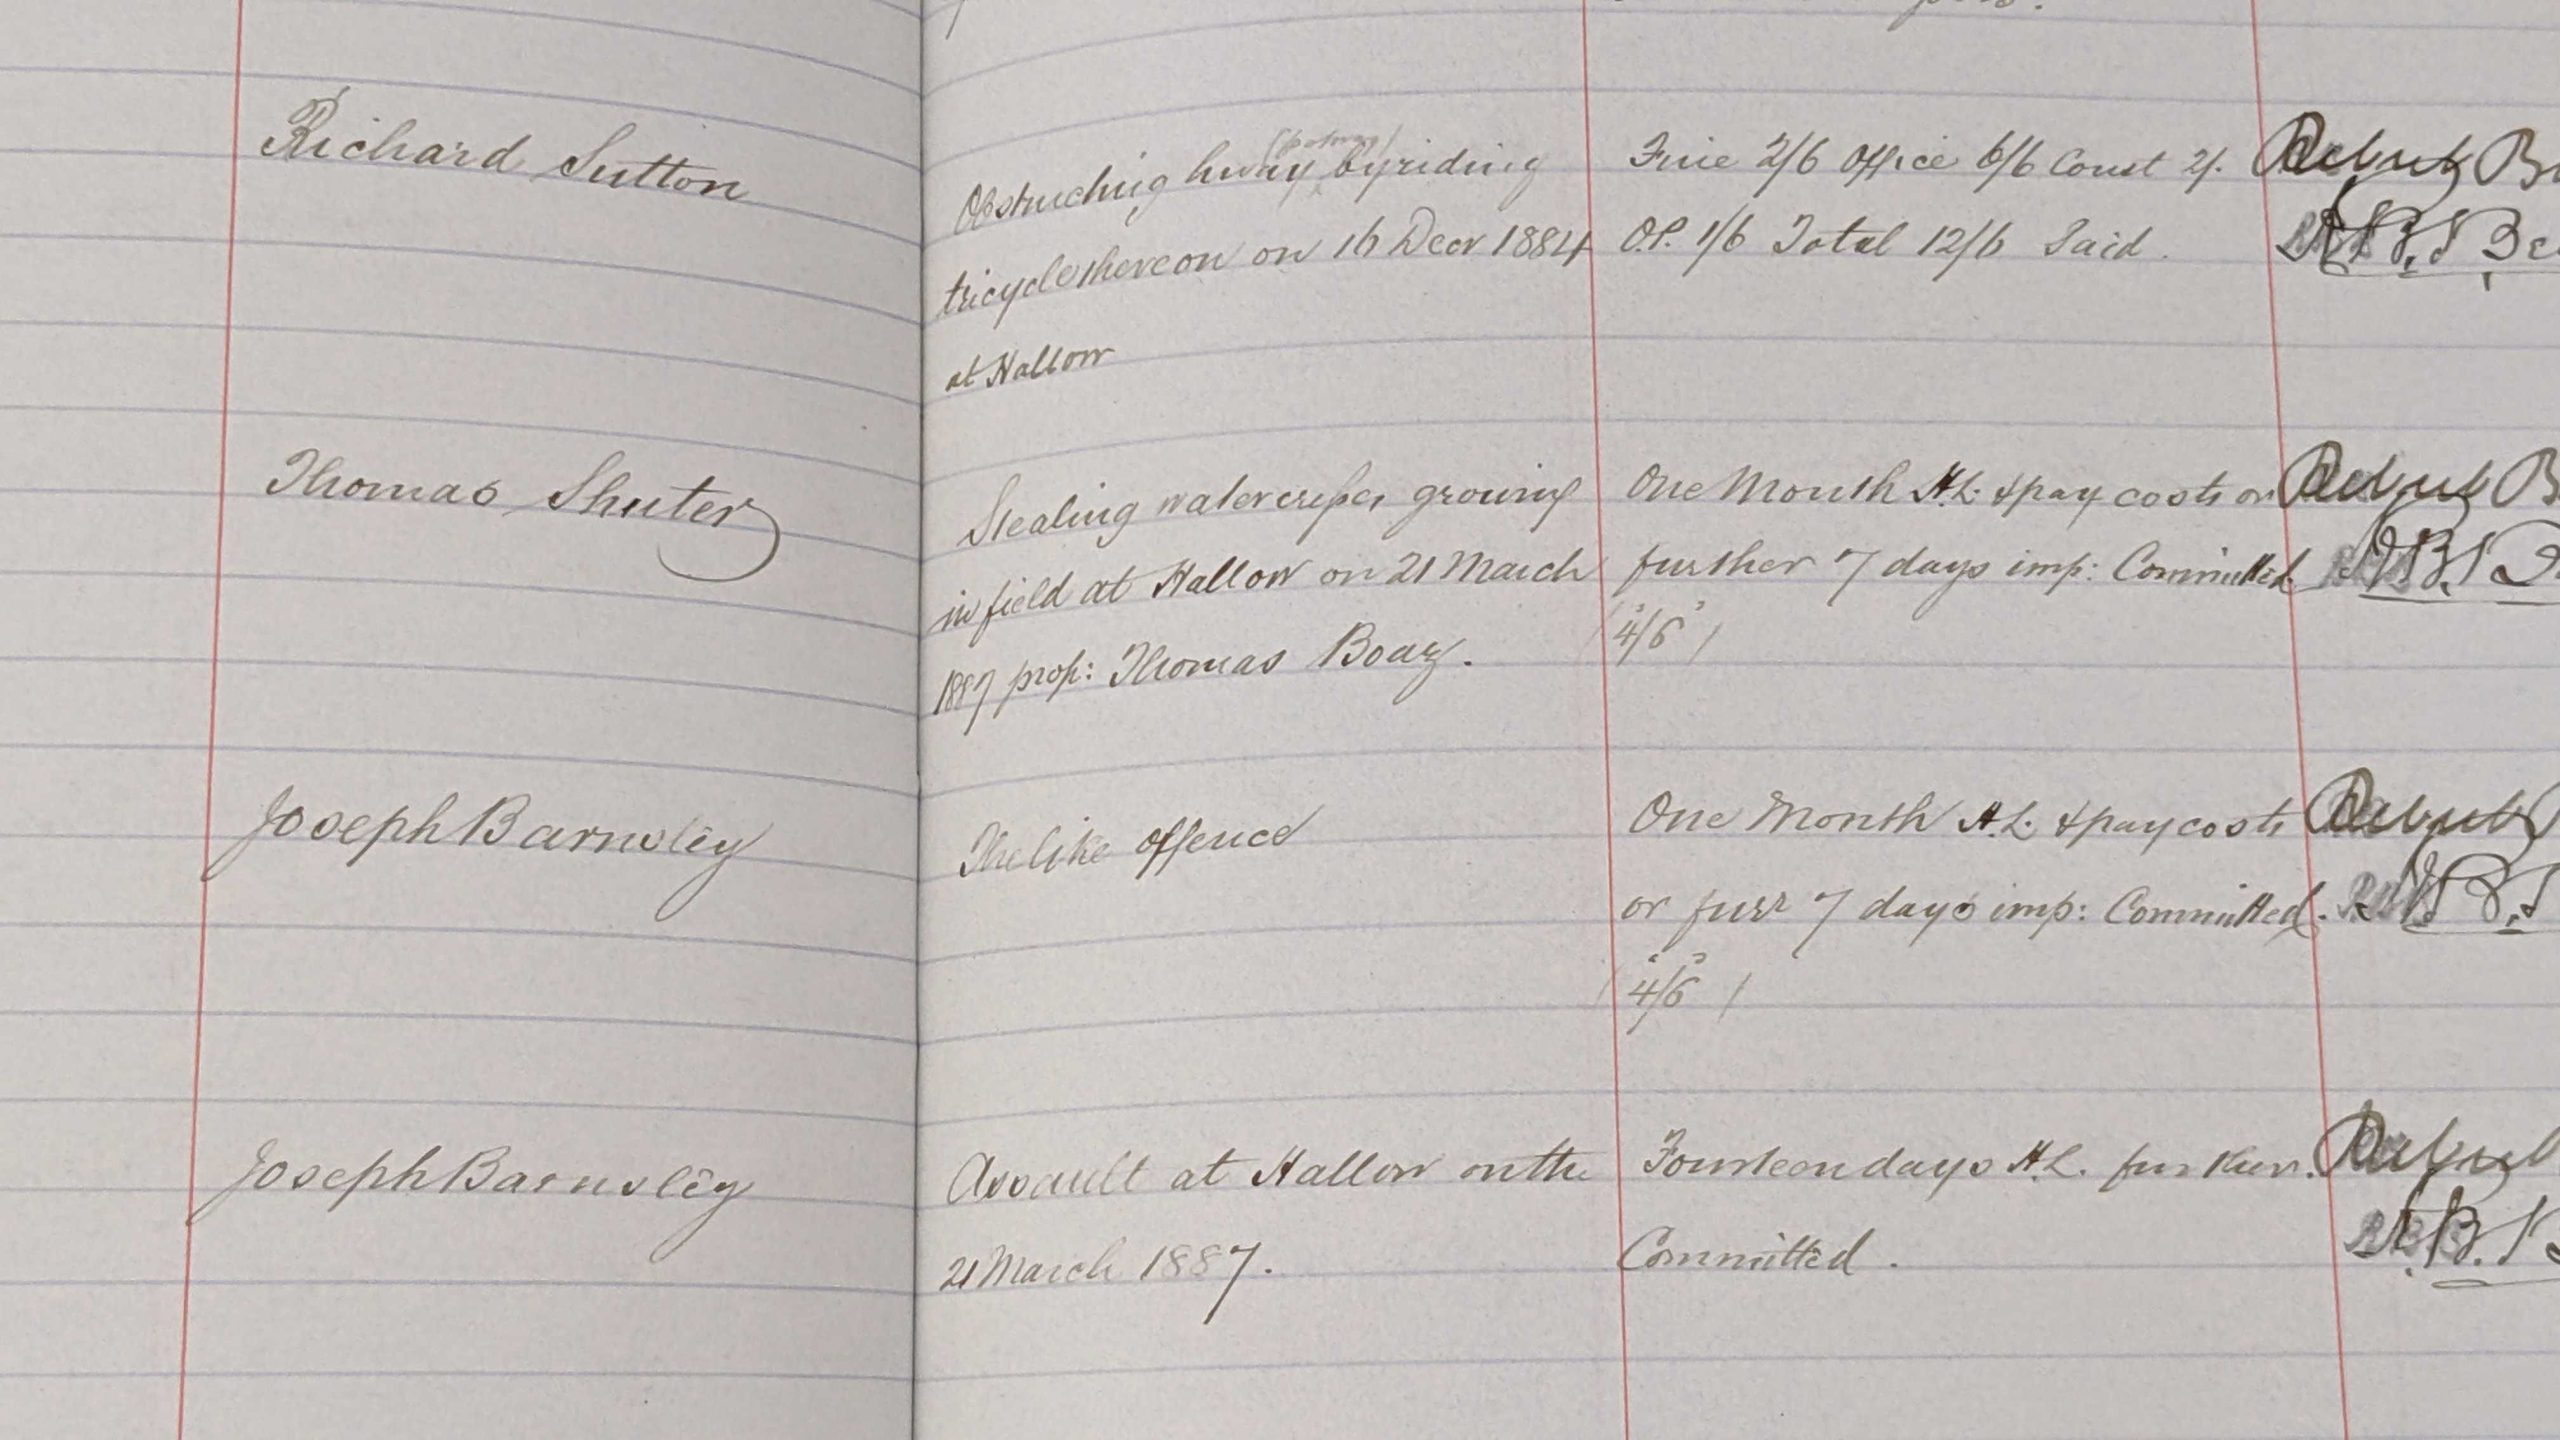 Richard Sutton
Obstructing hway (footway) by riding
tricycle thereon on 16 Decr 1884
at Hallow
Fine 2/6 Office 6/6 Const 2/.
O.P. 1/6 Total 12/6 Paid.
Thomas Shuter
Stealing watercresses growing
in field at Hallow on 21 March
1887 prop: Thomas Boaz.
One Month H.L. & pay costs or
further 7 days imp: Committed
(4/6)
Joseph Barnsley
The like offence
One Month H.L. & pay costs
or furr 7 days imp: Committed.
(4/6)
Joseph Barnsley
Assault at Hallow on the
21 March 1887.
Fourteen days H.L. further.
Committed.